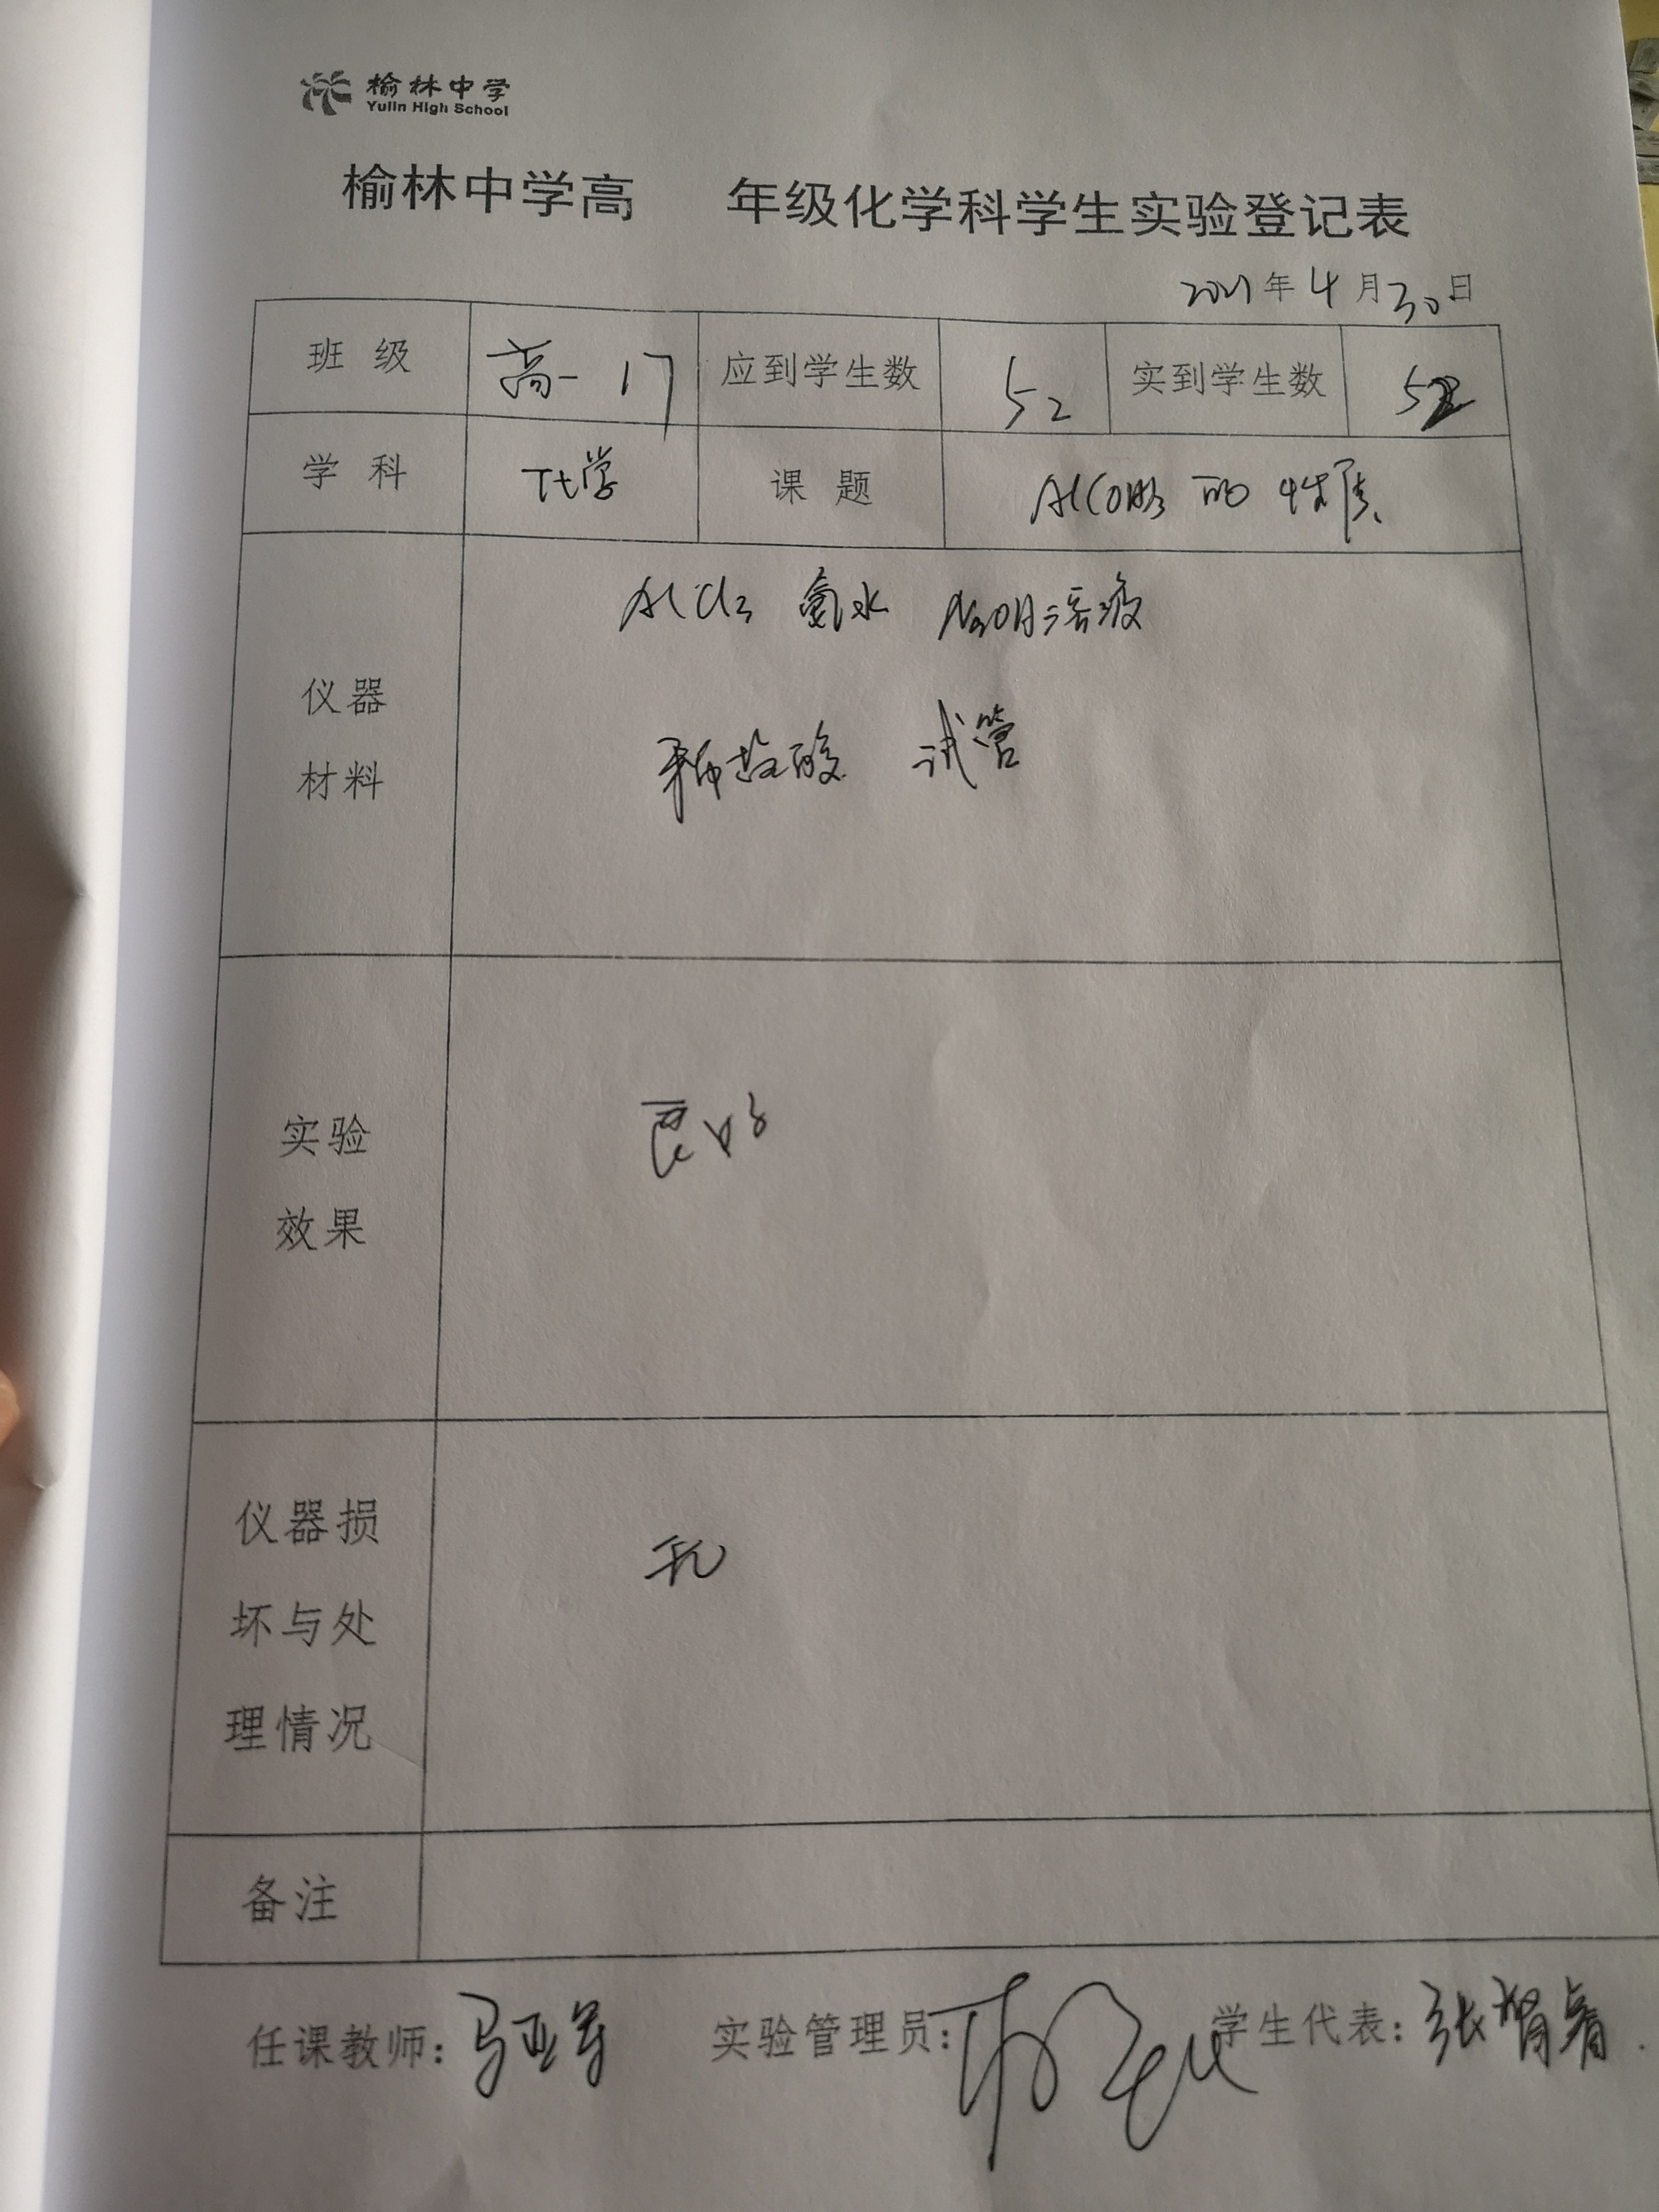 榆林中学
Yulin High School
榆林中学高 年级化学科学生实验登记表
2021年4月30日
班级 高一17 应到学生数 52 实到学生数 52
学科 化学 课题 Al(OH)3 的 性质
仪器
材料
AlCl3 氨水 NaOH溶液
稀盐酸 试管
实验
效果
良好
仪器损
坏与处
理情况
无
备注
任课教师: 马亚军 实验管理员: 学生代表: 张